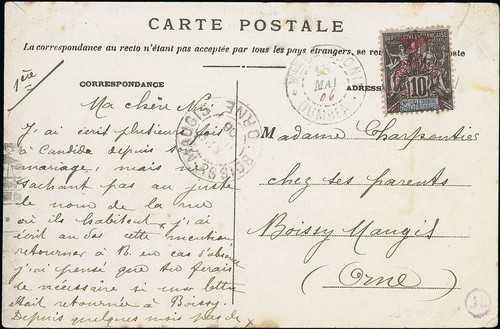 CARTE POSTALE
La correspondance au recto n'étant pas acceptée par tous les pays étrangers, se
poste
1ère
CORRESPONDANCE
Ma chère
J'ai écrit plusieurs fois
à Candida depuis
mariage, mais ne
sachant pas au juste
le nom de la rue
où ils habitent, j'ai
écrit au dos cette mention,
retourner à B. en cas d'absence
j'ai pensé que tu ferais
le nécessaire si une lettre
était retournée à Boissy.
Depuis quelques mois pas de
BOISSY-MAUGIS
ORNE
MAI
06
DUMBEA
10
Madame Charpentier
chez ses parents
Boissy Maugis
(Orne)